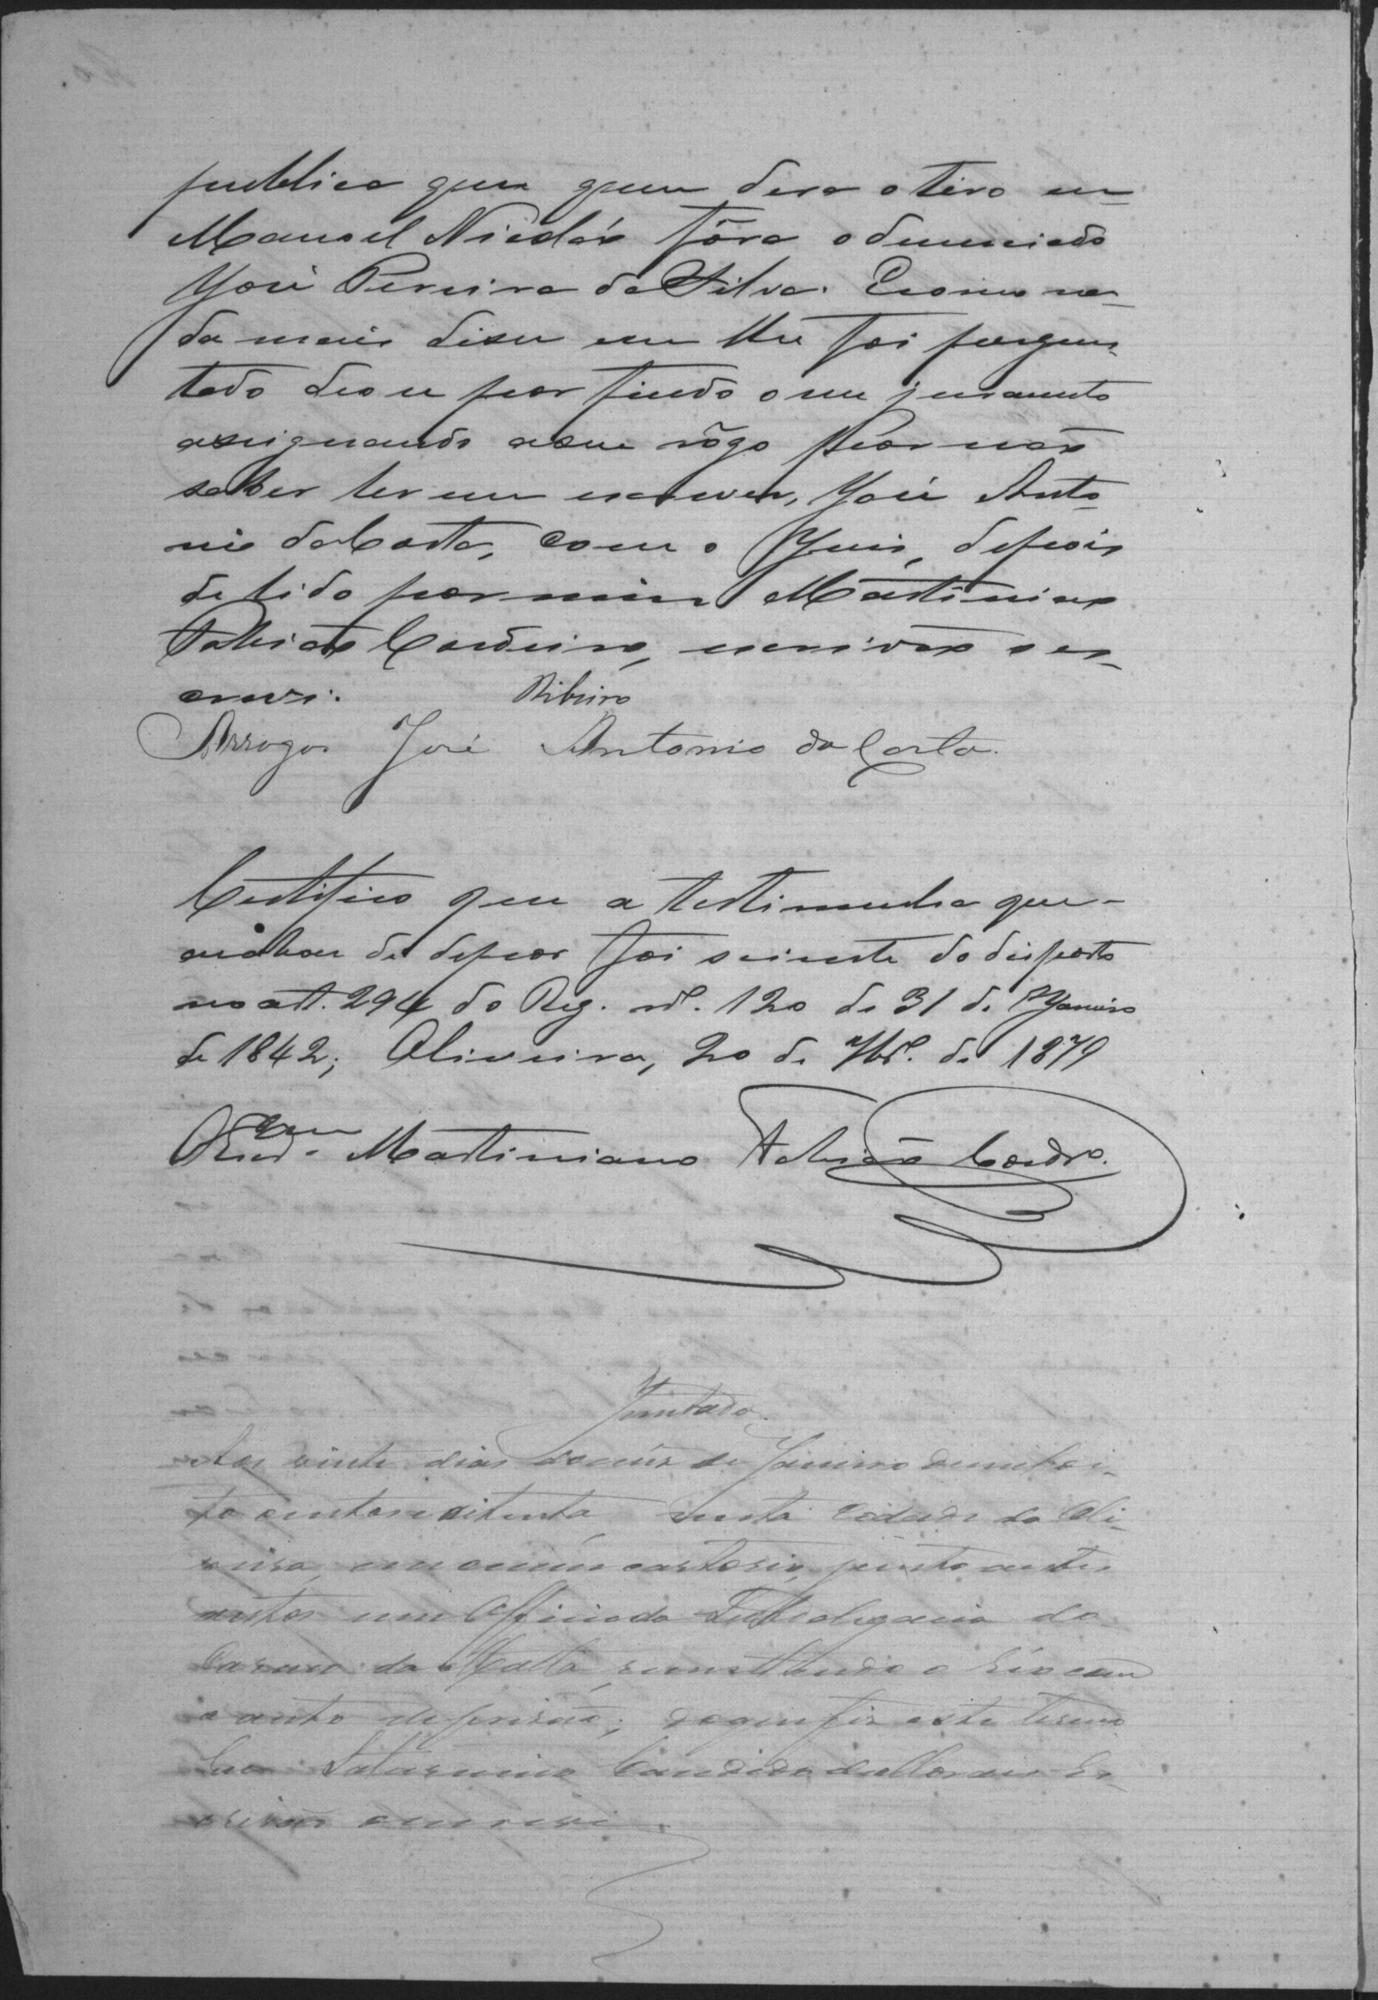 publica que quem dera o tiro em
Manoel Nicoláo fôra o denunciado
José Pereira da Silva. E como na-
da mais disse nem lhe foi pergun-
tado deo-se por findo o seu juramento
assignando a seu rôgo por não
saber ler nem escrever, José Anto-
nio da Costa, com o Juis, depois
de lido por mim Martiniano
Fabião Cordeiro, escrivão o es-
crevi.
Ribeiro
Arrogo José Antonio da Costa.
Certifico que a testimunha que
acabou de depor foi sciente do disposto
no art. 294 do Reg. nº. 120 de 31 de Janeiro
de 1842; Oliveira, 20 de 7brº. de 1879
Martiniano Fabião Cordrº.
Juntada.
Aos vinte dias do mês de Janeiro de mil oi-
to centos e oitenta nesta Cidade da Oli-
veira, em o meu cartorio, junto a estes
autos um Officio da Subdelegacia do
Carmo da Matta, remettendo o Réo com
o auto de prisão; do que fiz este termo
Eu Saturnino Candido de Moraes Es-
crivão o escrevi.